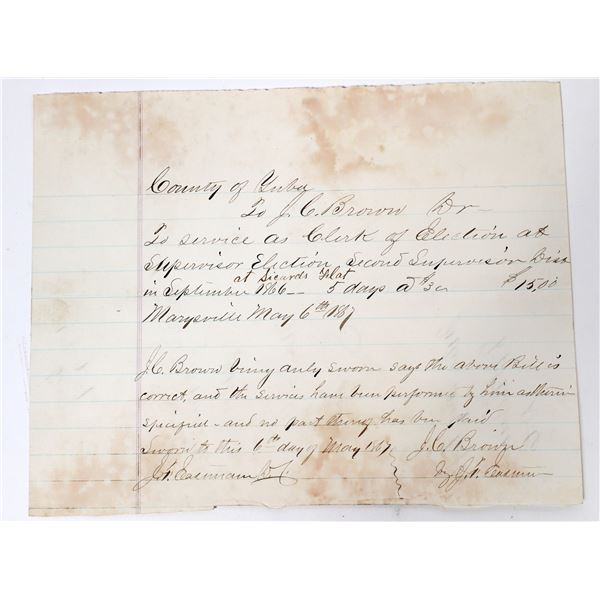 County of Yuba
To J. C. Brown Dr
To service as Clerk of Election at
Supervisor Election, Second Supervisor Dist
at Sicards Flat
in September 1866 — 5 days @ $3 $15.00
Marysville May 6th 1867
J. C. Brown being duly sworn says the above Bill is
correct, and the services have been performed by him as therein
specified — and no part thereof has been paid
Sworn to this 6th day of May 1867 J. C. Brown
J. F. Eastman by J. F. Eastman